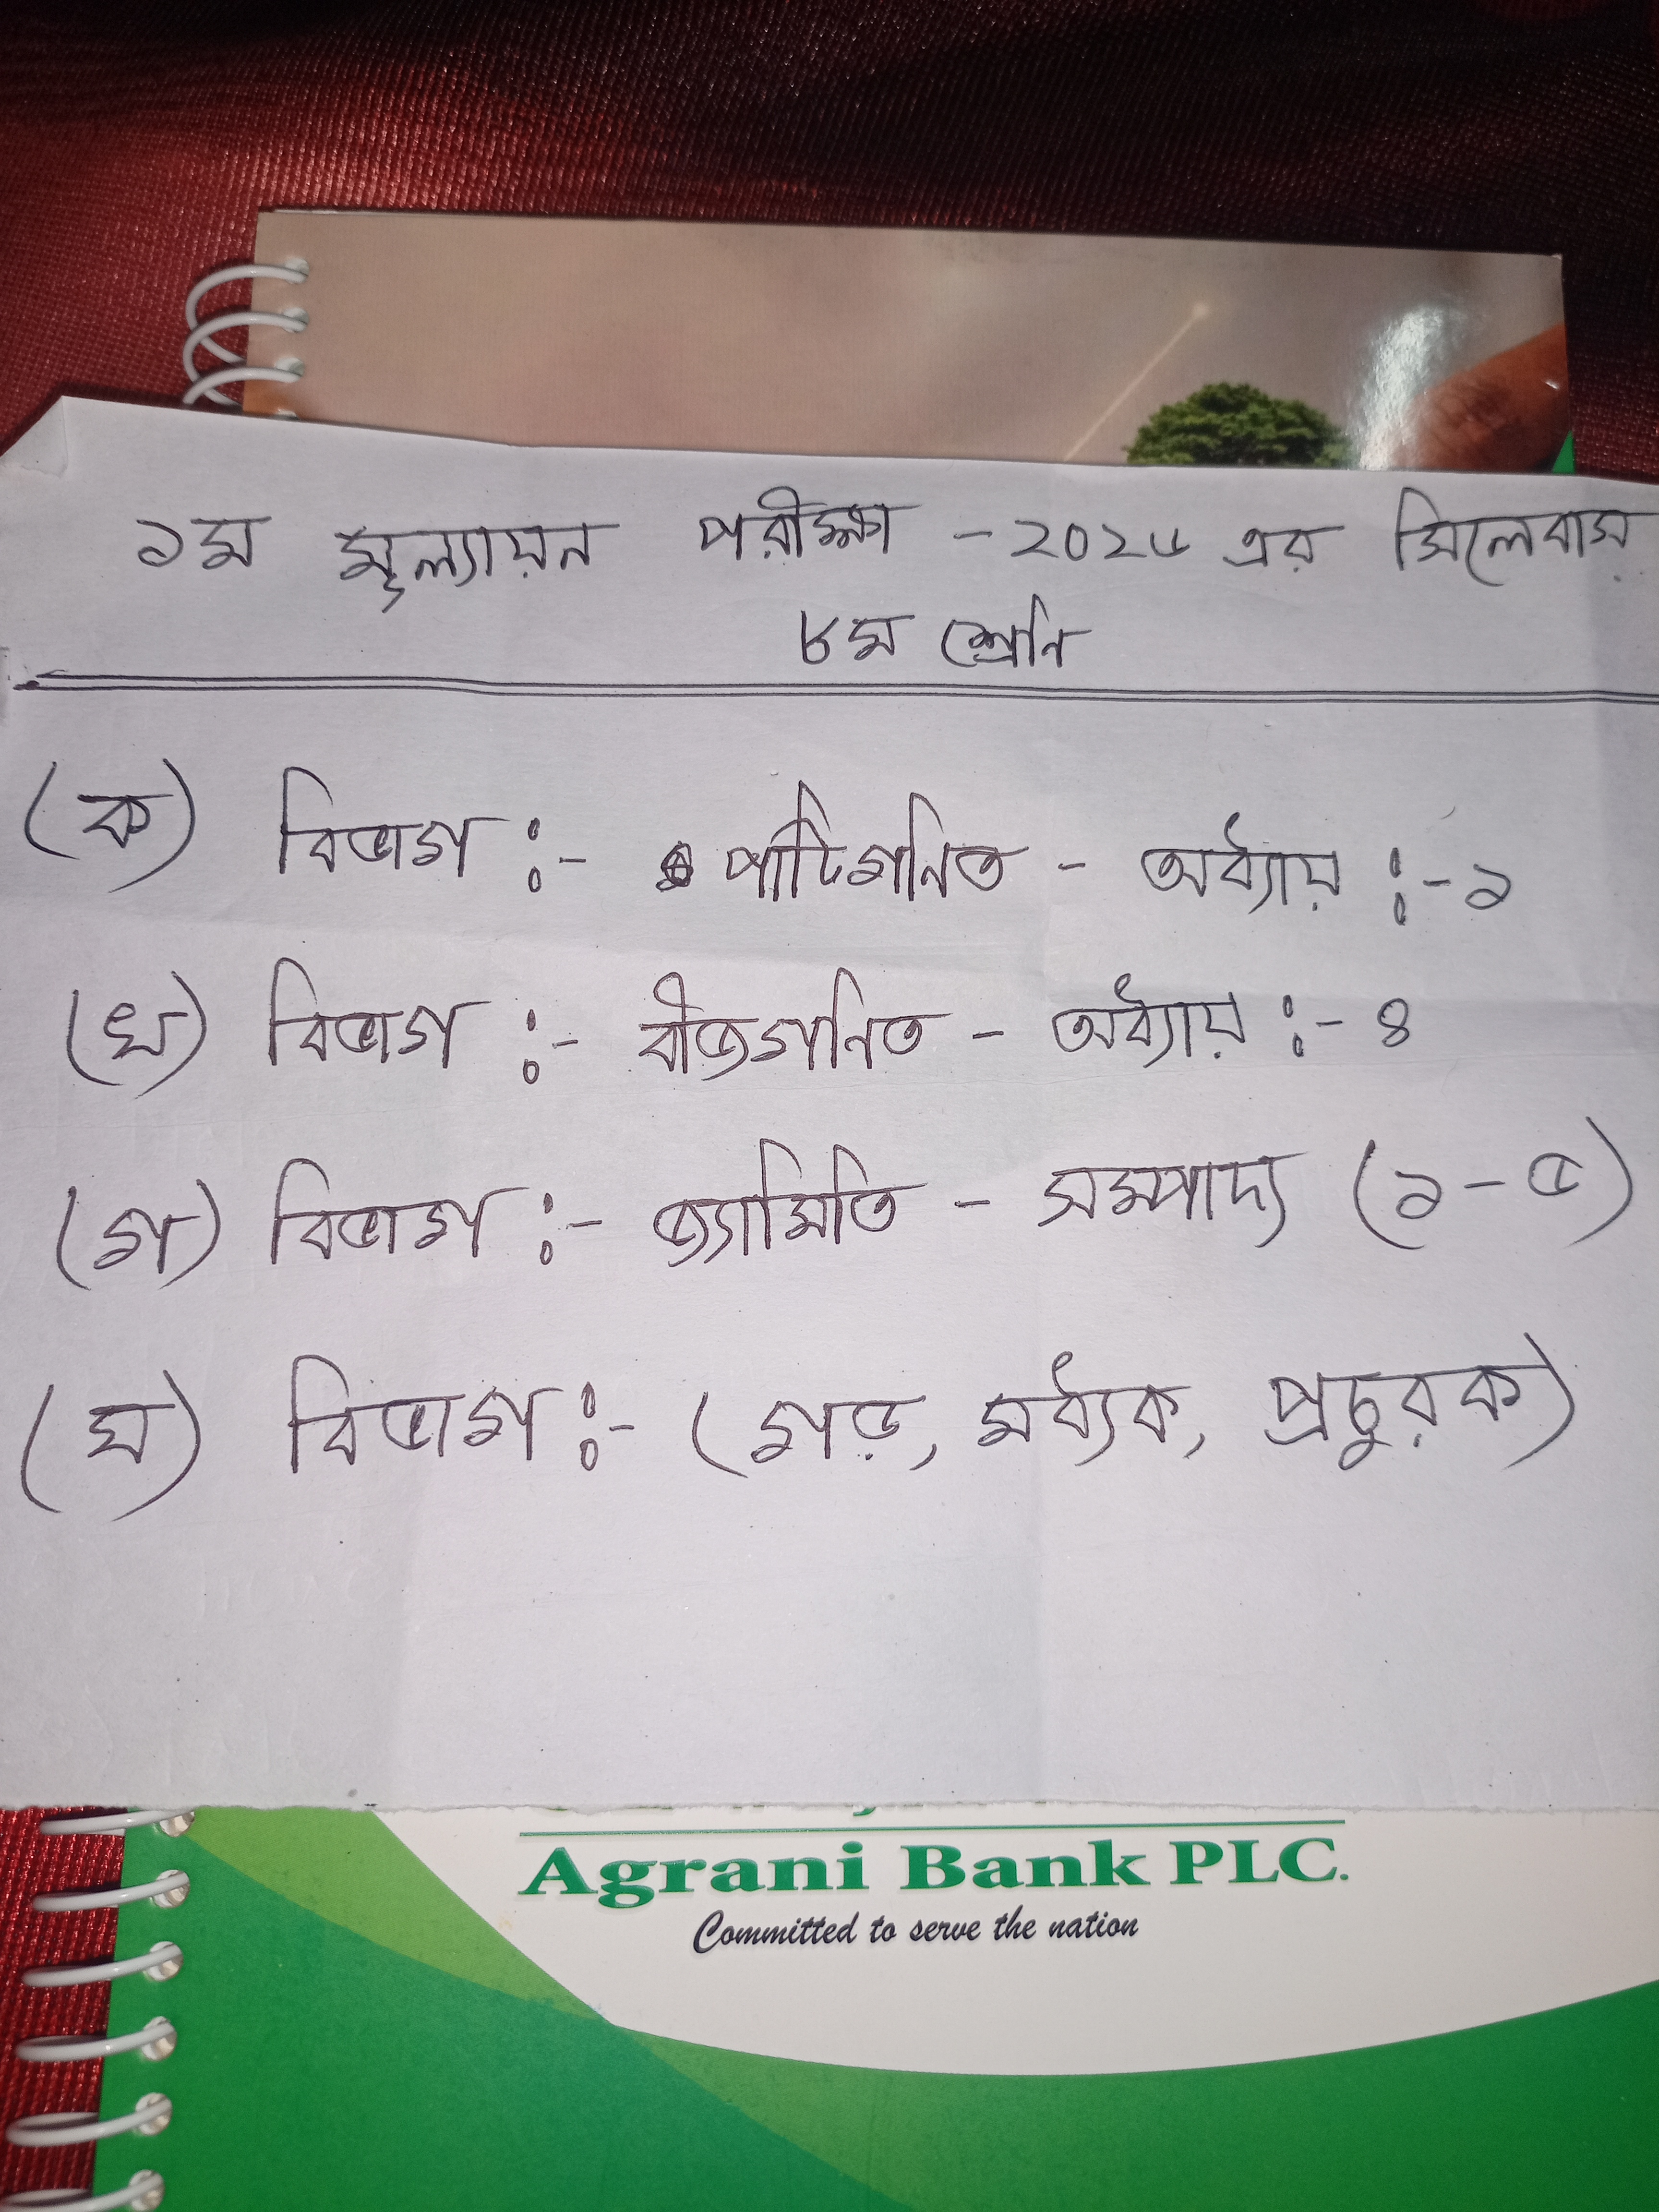 ১ম মূল্যায়ন পরীক্ষা - ২০২৬ এর সিলেবাস
৮ম শ্রেনি
(ক) বিভাগ :- পাটিগনিত - অধ্যায় :- ১
(খ) বিভাগ :- বীজগনিত - অধ্যায় :- ৪
(গ) বিভাগ :- জ্যামিতি - সম্পাদ্য (১-৫)
(ঘ) বিভাগ :- (গড়, মধ্যক, প্রচুরক)
Agrani Bank PLC.
Committed to serve the nation